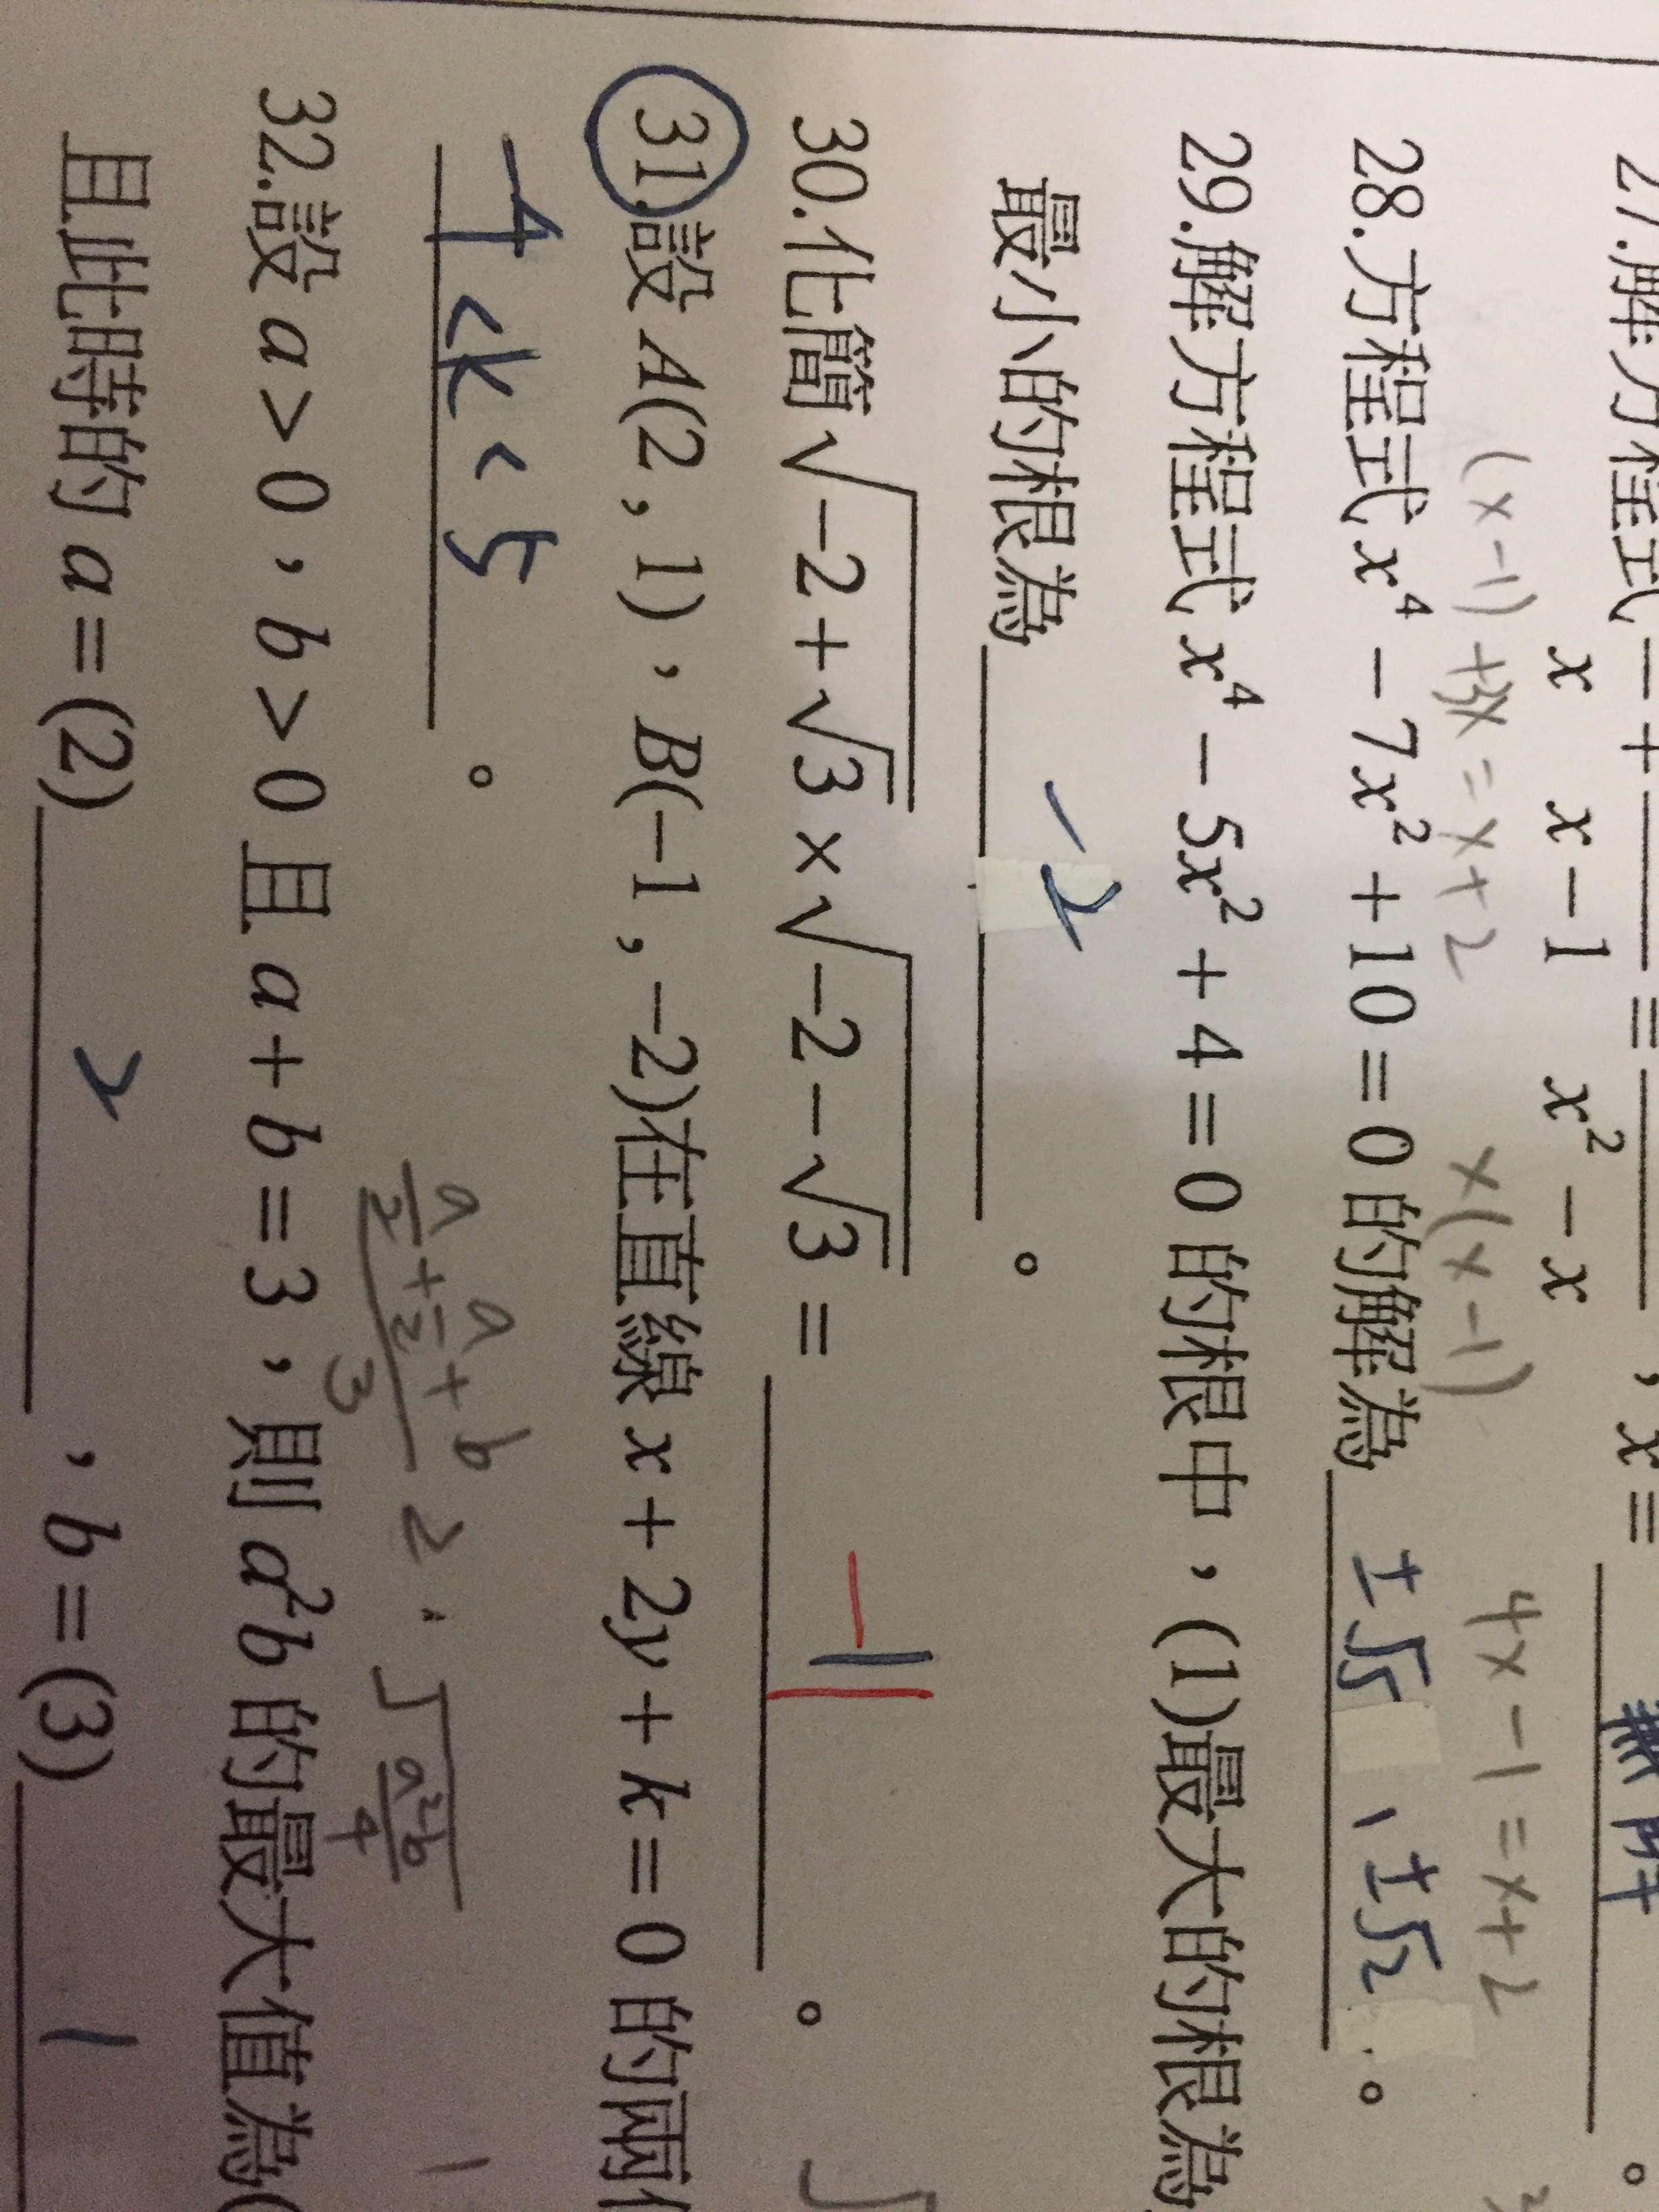 27.解方程式 1/x + /(x-1) = /(x²-x)，x= 無解。
(x-1)+3x=x+2 x(x-1) 4x-1=x+2
28.方程式 x⁴-7x²+10=0 的解為 ±√5，±√2。
29.解方程式 x⁴-5x²+4=0 的根中，(1)最大的根為
最小的根為 -2 。
30.化簡√(-2+√3)×√(-2-√3)= -1 。
31.設 A(2,1)，B(-1,-2)在直線 x+2y+k=0 的兩
-4<k<5 。
(a/2+a/2+b)/3 ≥ ∛(a²b/4)
32.設 a>0，b>0 且 a+b=3，則 a²b 的最大值為(
且此時的 a=(2) 2 ，b=(3) 1